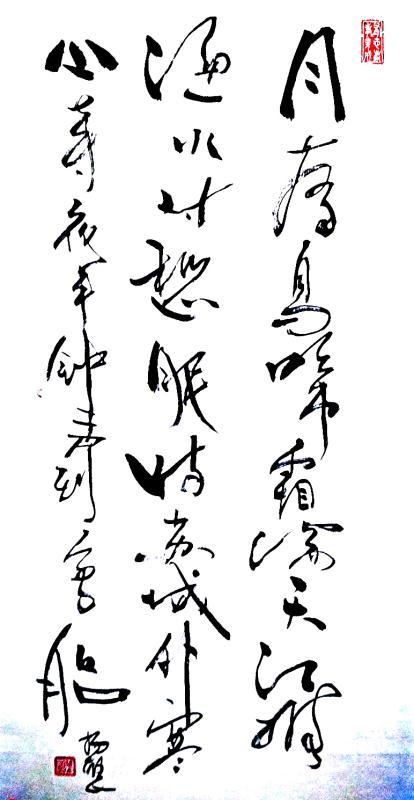 月落烏啼霜滿天江楓
漁火对愁眠姑苏城外寒
山寺夜半鐘声到客船